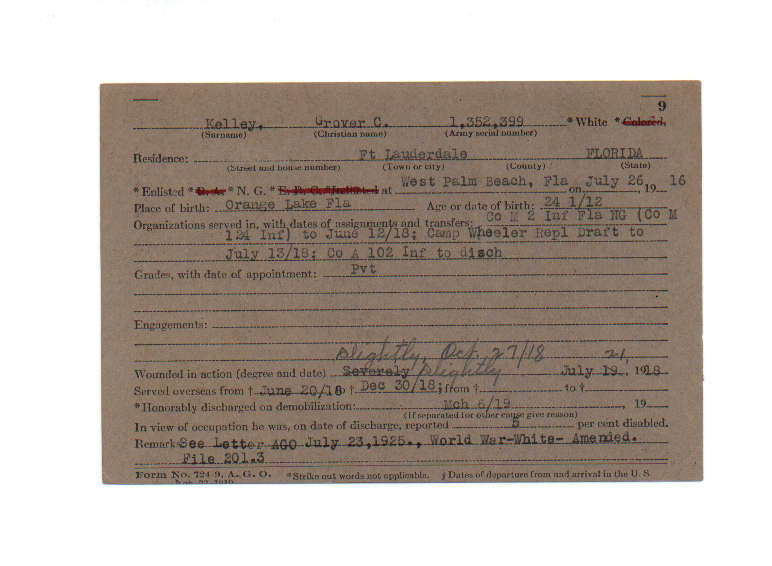 9
Kelley, Grover C. 1,352,399 * White * Colored,
(Surname) (Christian name) (Army serial number)
Residence: Ft Lauderdale FLORIDA
(Street and house number) (Town or city) (County) (State)
* Enlisted * R. A. * N. G. * E. R. C. * Inducted at West Palm Beach, Fla on July 26, 19 16
Place of birth: Orange Lake Fla Age or date of birth: 24 1/12
Organizations served in, with dates of assignments and transfers: Co M 2 Inf Fla NG (Co M
124 Inf) to June 12/18; Camp Wheeler Repl Draft to
July 13/18; Co A 102 Inf to disch
Grades, with date of appointment: Pvt
Engagements:
Slightly, Oct. 27/18 21,
Wounded in action (degree and date) Severely Slightly July 19, 1918
Served overseas from † June 20/18 to † Dec 30/18; from † to †
* Honorably discharged on demobilization: Mch 6/19, 19
(If separated for other cause give reason)
In view of occupation he was, on date of discharge, reported 5 per cent disabled.
Remarks See Letter AGO July 23,1925., World War-White- Amended.
File 201.3
Form No. 724-9, A. G. O. * Strike out words not applicable. † Dates of departure from and arrival in the U. S.